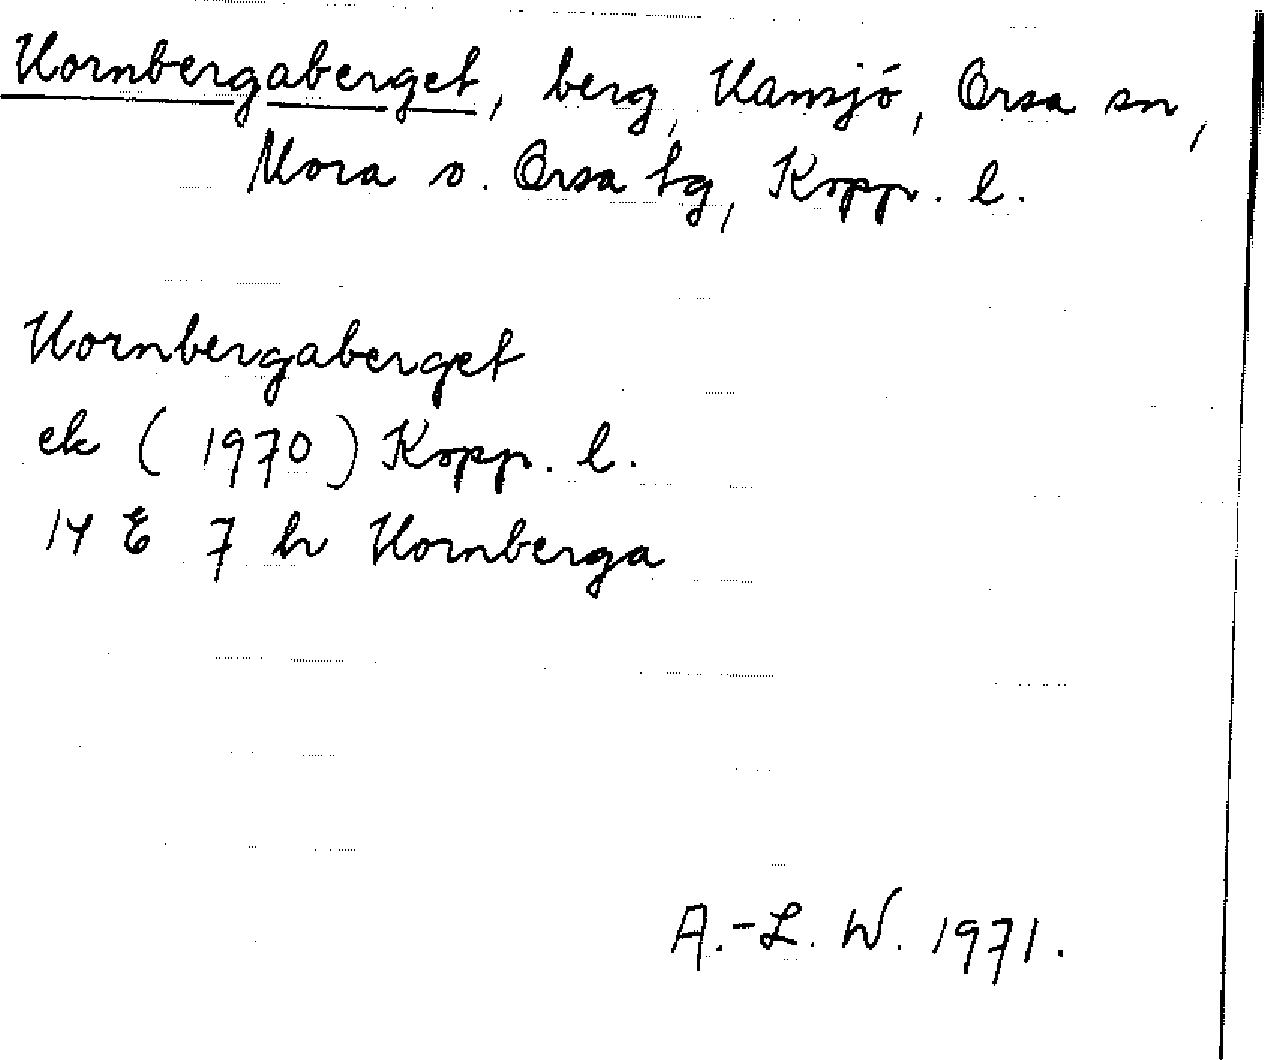 Hornbergaberget, berg, Hansjö, Orsa sn,
Mora o. Orsa tg, Kopp. l.
Hornbergaberget
ek (1970) Kopp. l.
14 E 7 h Hornberga
A.-L. W. 1971.